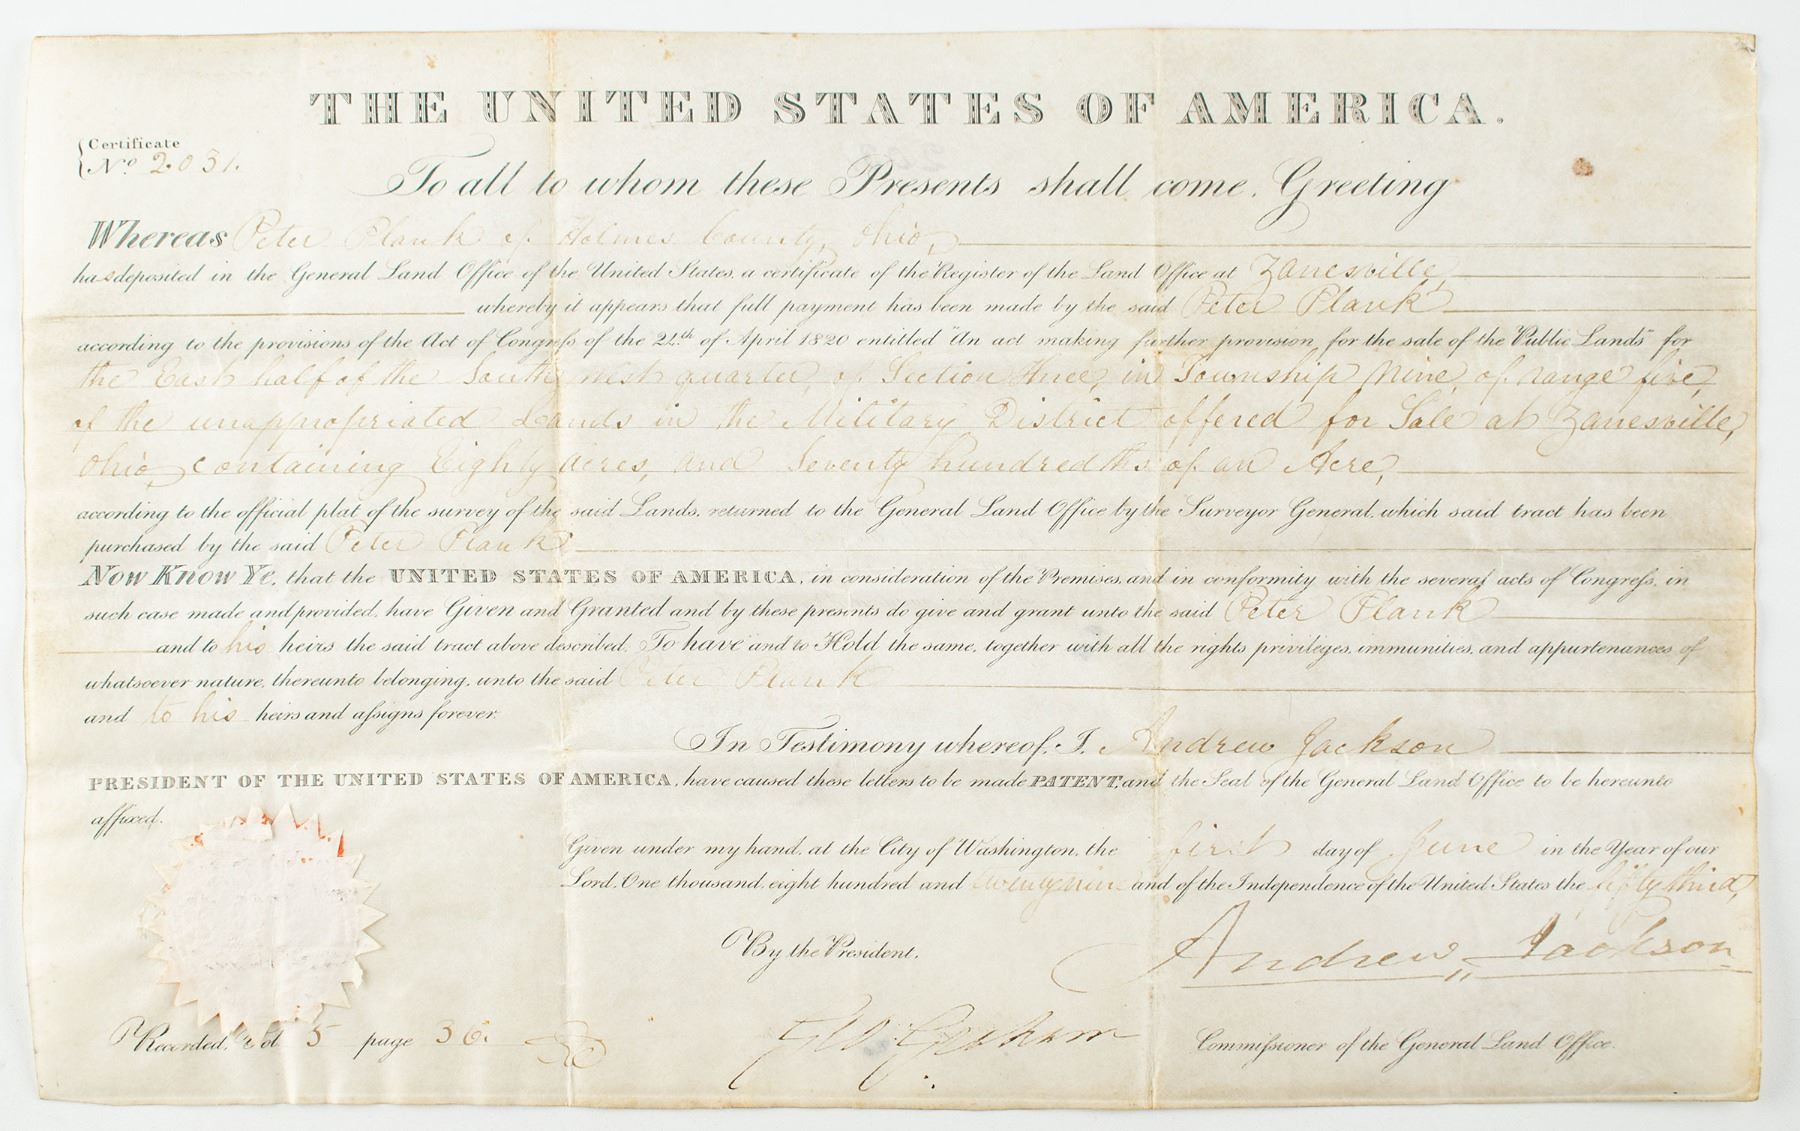 THE UNITED STATES OF AMERICA.
Certificate
No. 2051.
To all to whom these Presents shall come, Greeting
Whereas Peter Plank of Holmes County, Ohio,
has deposited in the General Land Office of the United States, a certificate of the Register of the Land Office at Zanesville,
whereby it appears that full payment has been made by the said Peter Plank
according to the provisions of the Act of Congress of the 24th of April 1820 entitled "An act making further provision, for the sale of the Public Lands" for
the East half of the South west quarter, of Section three, in Township Nine, of range five,
of the unappropriated Lands in the Military District offered for Sale at Zanesville,
Ohio, containing Eighty acres, and Seventy hundredths of an Acre,
according to the official plat of the survey of the said Lands, returned to the General Land Office by the Surveyor General, which said tract has been
purchased by the said Peter Plank
Now Know Ye, that the UNITED STATES OF AMERICA, in consideration of the Premises, and in conformity with the several acts of Congress, in
such case made and provided, have Given and Granted and by these presents do give and grant unto the said Peter Plank
and to his heirs the said tract above described, To have and to Hold the same, together with all the rights privileges, immunities, and appurtenances of
whatsoever nature, thereunto belonging, unto the said Peter Plank
and to his heirs and assigns forever.
In Testimony whereof, I, Andrew Jackson
PRESIDENT OF THE UNITED STATES OF AMERICA, have caused these letters to be made PATENT, and the Seal of the General Land Office to be hereunto
affixed.
Given under my hand, at the City of Washington, the first day of June in the Year of our
Lord, One thousand eight hundred and twenty nine and of the Independence of the United States the fifty third,
By the President, Andrew Jackson
Recorded, Vol 5 page 36. Commissioner of the General Land Office.